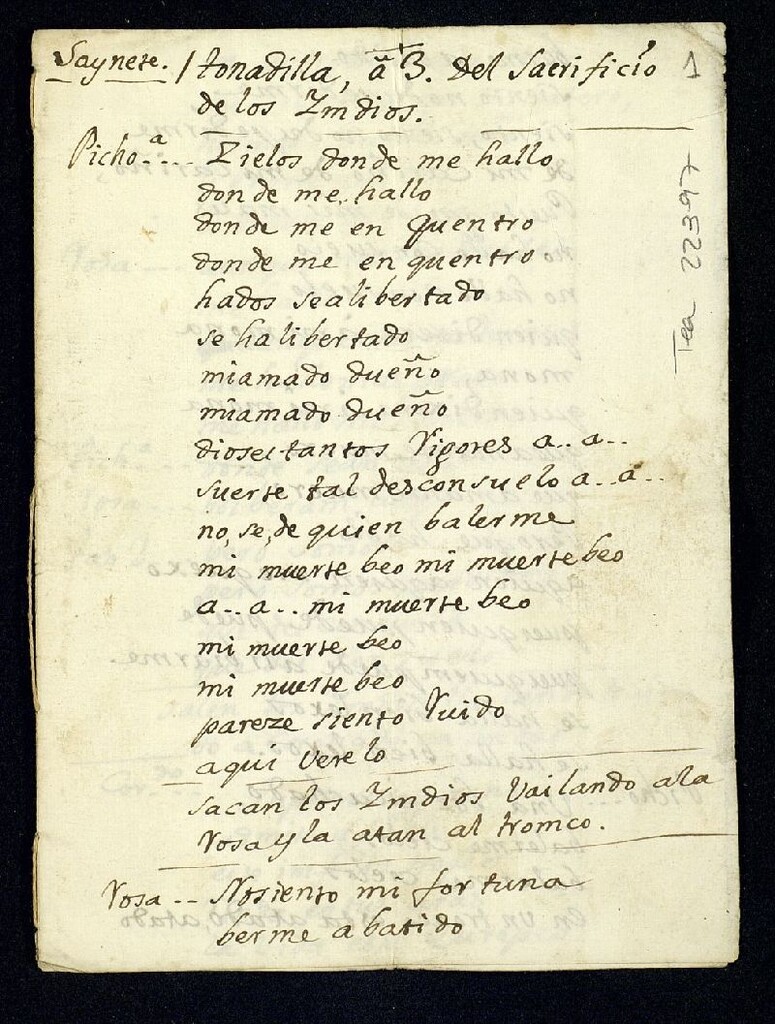 Saynete. / tonadilla, â 3. Del Sacrificio 1
de los Ymdios.
Pichoª.... Zielos donde me hallo
donde me hallo
donde me en quentro
donde me en quentro
hados sealibertado
se ha libertado
miamado dueño
miamado dueño
dioses tantos Rigores a..a..
suerte tal desconsuelo a..a..
no, se, de quien balerme
mi muerte beo mi muerte beo
a..a.. mi muerte beo
mi muerte beo
mi muerte beo
pareze siento Ruido
aqui vere lo
sacan los Ymdios Vailando ala
Rosa y la atan al tromco.
Rosa -- Nosiento mi fortuna
berme abatido
Tea 22397